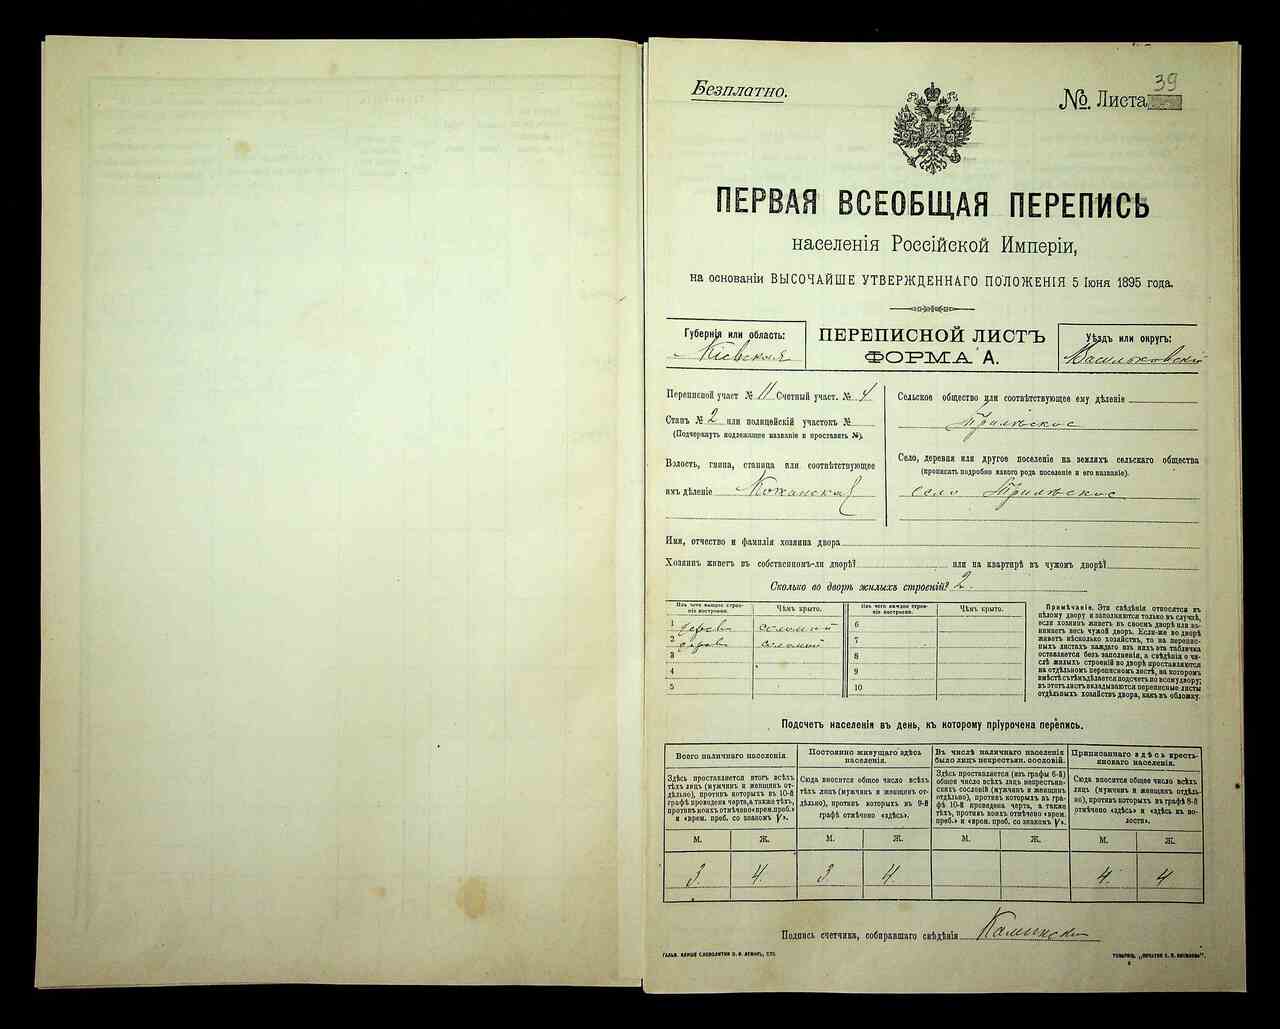 Безплатно.
39
№. Листа
ПЕРВАЯ ВСЕОБЩАЯ ПЕРЕПИСЬ
населенія Россійской Имперіи,
на основаніи ВЫСОЧАЙШЕ УТВЕРЖДЕННАГО ПОЛОЖЕНІЯ 5 Іюня 1895 года.
Губернія или область:
Кіевская
ПЕРЕПИСНОЙ ЛИСТЪ
ФОРМА А.
Уѣздъ или округъ:
Васильковскій
Переписной участ № 11 Счетный участ. № 4
Станъ № 2 или полицейскій участокъ №
(Подчеркнуть подлежащее названіе и проставить №).
Волость, гмина, станица или соотвѣтствующее
имъ дѣленіе Кожанская
Сельское общество или соотвѣтствующее ему дѣленіе
Трилѣское
Село, деревня или другое поселеніе на земляхъ сельскаго общества
(прописать подробно какого рода поселеніе и его названіе).
село Трилѣское
Имя, отчество и фамилія хозяина двора
Хозяинъ живетъ въ собственномъ-ли дворѣ? или на квартирѣ въ чужомъ дворѣ?
Сколько во дворѣ жилыхъ строеній? 2.
Изъ чего каждое строе-
ніе построено.
Чѣмъ крыто.
Изъ чего каждое строе-
ніе построено.
Чѣмъ крыто.
1 дерев соломой 6
2 дерев соломой 7
3 8
4 9
5 10
Примѣчаніе. Эти свѣдѣнія относятся къ
цѣлому двору и заполняются только въ случаѣ,
если хозяинъ живетъ въ своемъ дворѣ или за-
нимаетъ весь чужой дворъ. Если-же во дворѣ
живетъ нѣсколько хозяйствъ, то на перепис-
ныхъ листахъ каждаго изъ нихъ эта табличка
оставляется безъ заполненія, а свѣдѣнія о чи-
слѣ жилыхъ строеній во дворѣ проставляются
на отдѣльномъ переписномъ листѣ, на которомъ
вмѣстѣ съ тѣмъ дѣлается подсчетъ по всему двору;
въ этотъ листъ вкладываются переписные листы
отдѣльныхъ хозяйствъ двора, какъ въ обложку.
Подсчетъ населенія въ день, къ которому пріурочена перепись.
Всего наличнаго населенія.
Здѣсь проставляется итогъ всѣхъ
тѣхъ лицъ (мужчинъ и женщинъ от-
дѣльно), противъ которыхъ въ 10-й
графѣ проведена черта, а также тѣхъ,
противъ коихъ отмѣчено «врем. преб.»
и «врем. преб. со знакомъ V».
Постоянно живущаго здѣсь
населенія.
Сюда вносится общее число всѣхъ
тѣхъ лицъ (мужчинъ и женщинъ от-
дѣльно), противъ которыхъ въ 9-й
графѣ отмѣчено «здѣсь».
Въ числѣ наличнаго населенія
было лицъ некрестьян. сословій.
Здѣсь проставляется (изъ графы 6-й)
общее число всѣхъ лицъ некрестьян-
скихъ сословій (мужчинъ и женщинъ
отдѣльно), противъ которыхъ въ гра-
фѣ 10-й проведена черта, а также
тѣхъ, противъ коихъ отмѣчено «врем.
преб.» и «врем. преб. со знакомъ V».
Приписаннаго здѣсь кресть-
янскаго населенія.
Сюда вносится общее число всѣхъ
лицъ (мужчинъ и женщинъ отдѣль-
но), противъ которыхъ въ графѣ 8-й
отмѣчено «здѣсь» и «здѣсь въ во-
лости».
М. Ж. М. Ж. М. Ж. М. Ж.
3. 4. 3. 4. 4. 4
Подпись счетчика, собиравшаго свѣдѣнія Каминскі